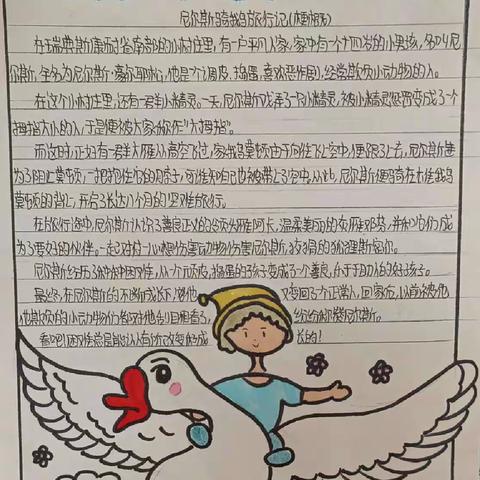 尼尔斯骑鹅旅行记(梗概)
在瑞典斯康耐省南部的小村庄里,有一户平凡人家,家中有一个十四岁的小男孩,名叫尼
尔斯,全名为尼尔斯·豪尔耶松,他是个调皮、捣蛋、喜欢恶作剧,经常欺负小动物的人。
在这个小村庄里,还有一群小精灵。一天,尼尔斯戏弄了一只小精灵,被小精灵惩罚变成了一个
拇指大小的人,于是便被大家称作"大拇指"。
而这时,正好有一群大雁从高空飞过,家鹅莫顿由于向往飞上空中,便跟了上去,尼尔斯
为了阻止莫顿,一把抱住它的脖子,可谁知自己也被带上了空中,从此,尼尔斯便骑在大雄鹅
莫顿的背上,开启了长达八个月的艰难旅行。
在旅行途中,尼尔斯认识了善良正义的领头雁阿卡,温柔美丽的灰雁邓芬,并和它们成
为了要好的伙伴。一起对付一心想伤害动物们伤害尼尔斯,狡猾的狐狸斯密尔。
尼尔斯经历了种种困难,从一个调皮,捣蛋的孩子变成了一个善良,乐于助人的好孩子。
最终,在尼尔斯的不断成长下,使他 又变回了正常人,回家后,以前被他
他欺负的小动物们都对他刮目相看了, 纷纷称赞尼尔斯。
看吧!困难总是能让人有所改变和成 长的!